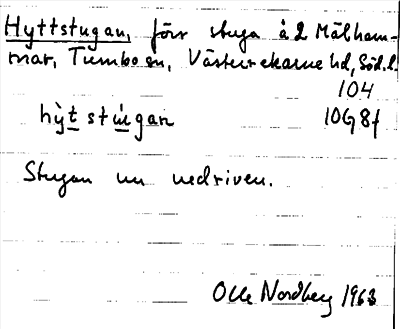 Hyttstugan, förr stuga å 2 Mälham-
mar, Tumbo sn, Västerrekarne hd, Söd. l.
104
hỳt stúgan 10G 8f
Stugan nu nedriven.
Olle Nordberg 1963